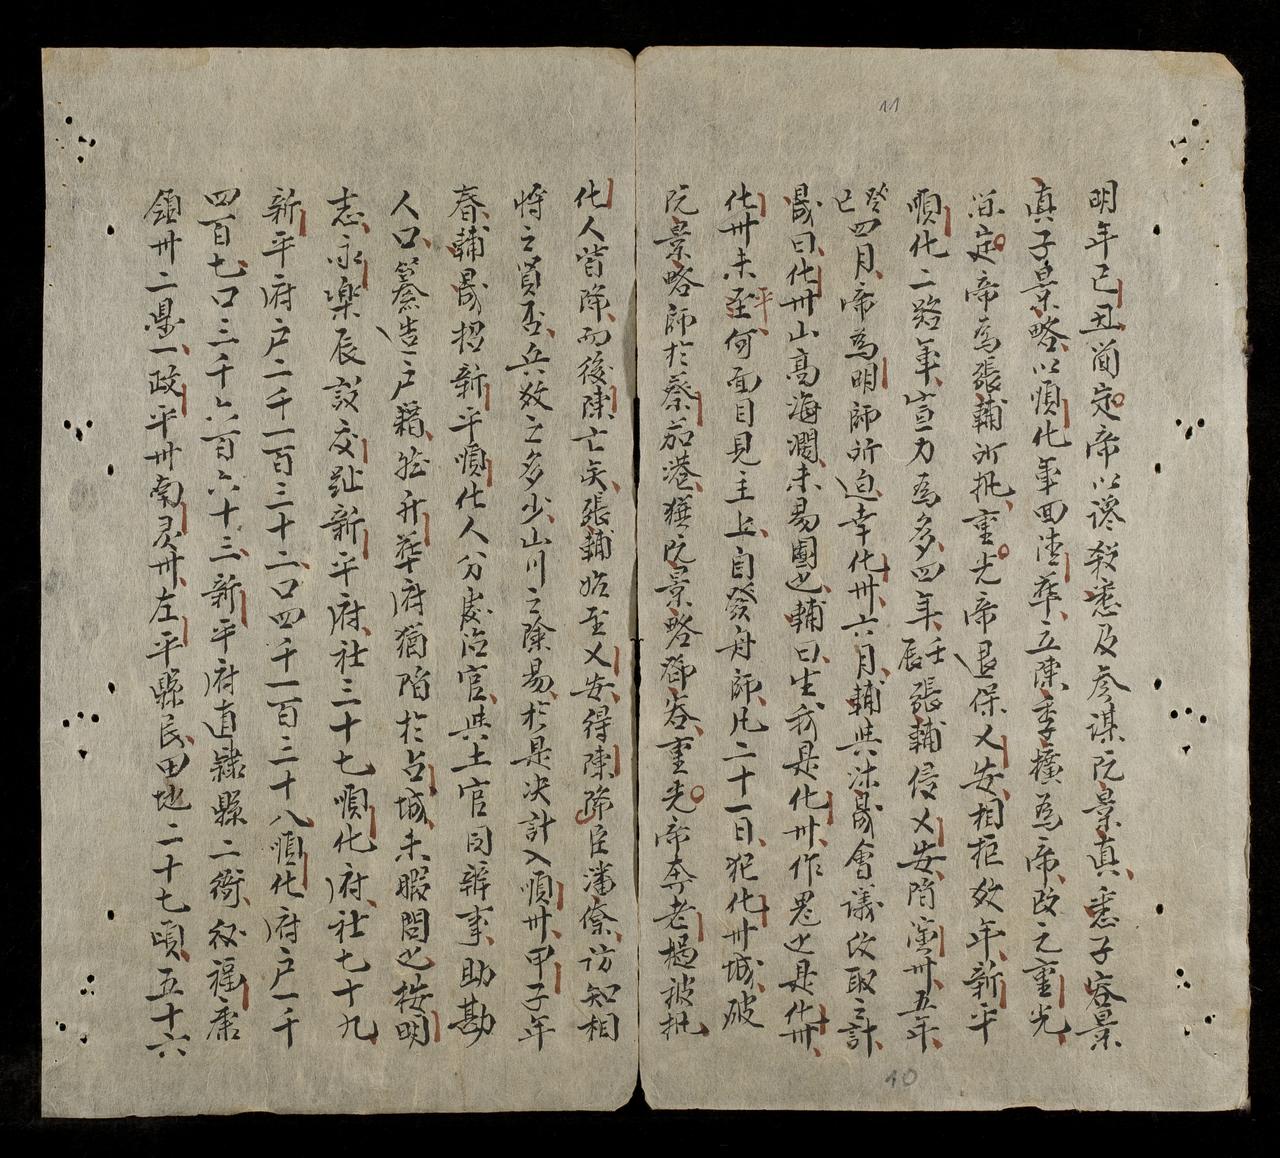 明年己丑簡定帝以讒殺悉及參謀阮景真悉子容景
真子景略以順化軍回清華立陳季擴為帝改元重光
簡定帝為張輔所執重光帝退保乂安相拒效年新平
順化二路軍宣力為多四年壬辰張輔侵乂安陷演州五年
癸巳四月帝為明師所迫幸化州六月輔與沐晟會議攻取之計
晟曰化州山高海濶未易圖也輔曰生我是化州作鬼也是化州
化州未平至何面目見主上自發舟師凡二十一日犯化州城破
阮景略師於蔡茄港獲阮景略鄧容重光帝奔老撾被执
化人皆降而後陳亡矣張輔始至乂安得陳降臣潘僚访知相
將之賢否兵效之多少山川之險易於是决計入順州甲子年
春輔晟招新平順化人分處治官與土官同辦事助勘
人口纂造户籍然升華府猶陷於占城未暇問也按明
志永樂辰設交趾新平府社三十七順化府社七十九
新平府户二千一百三十二口四千一百三十八順化府户一千
四百七口三千六百六十三新平府直隷縣二衙仪福康
領州二縣一政平州南灵州左平縣民田地二十七頃五十六
11
10